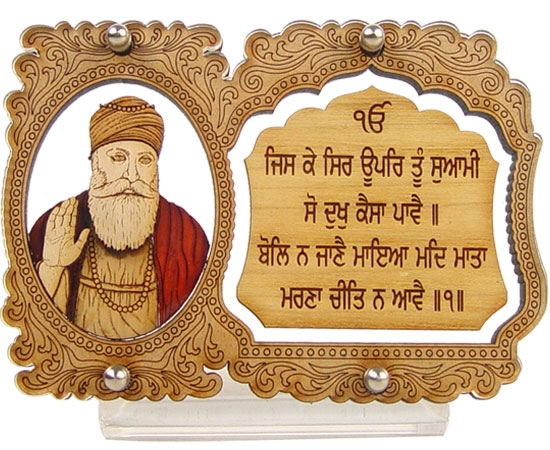 ੴ
ਜਿਸ ਕੇ ਸਿਰ ਊਪਰਿ ਤੂੰ ਸੁਆਮੀ
ਸੋ ਦੁਖੁ ਕੈਸਾ ਪਾਵੈ ॥
ਬੋਲਿ ਨ ਜਾਣੈ ਮਾਇਆ ਮਦਿ ਮਾਤਾ
ਮਰਣਾ ਚੀਤਿ ਨ ਆਵੈ ॥੧॥